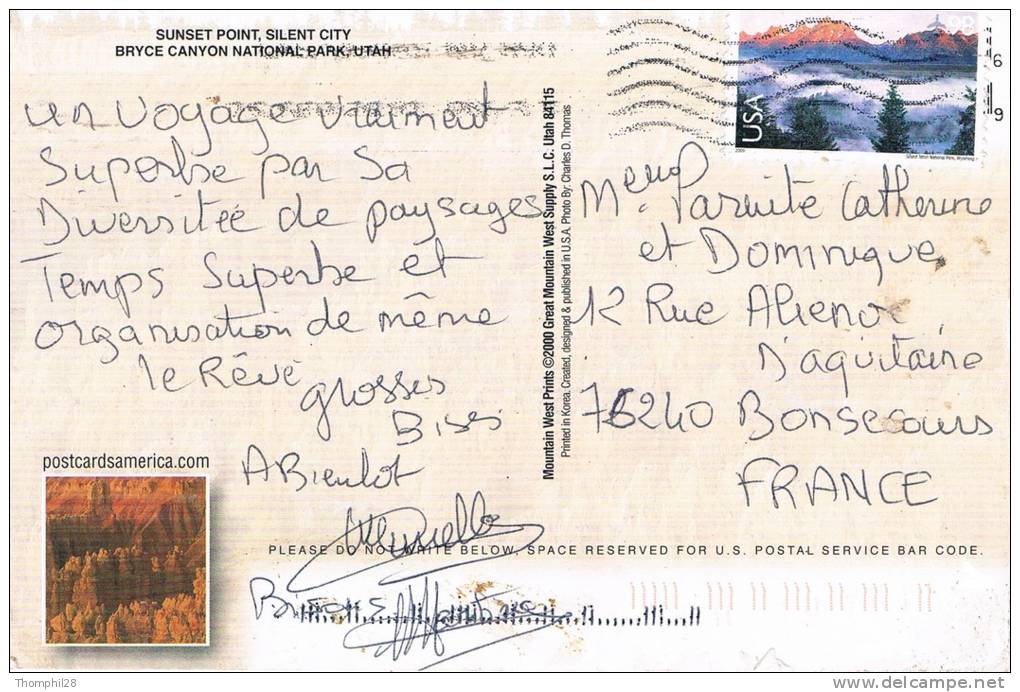 SUNSET POINT, SILENT CITY
BRYCE CANYON NATIONAL PARK, UTAH
un voyage vraiment
Superbe par Sa
Diversitée de paysages
Temps Superbe et
organisation de même
le Rêve
grosses
Bises
A Bientot
postcardsamerica.com
Mountain West Prints ©2000 Great Mountain West Supply S.L.C. Utah 84115
Printed in Korea. Created, designed & published in U.S.A. Photo By: Charles D. Thomas
USA
98
2009
Grand Teton National Park, Wyoming
6
9
Catherine
et Dominique
12 Rue Alienor
D'aquitaine
76240 Bonsecours
FRANCE
PLEASE DO NOT WRITE BELOW, SPACE RESERVED FOR U.S. POSTAL SERVICE BAR CODE.
http://www.delcampe.net
Thomphi28